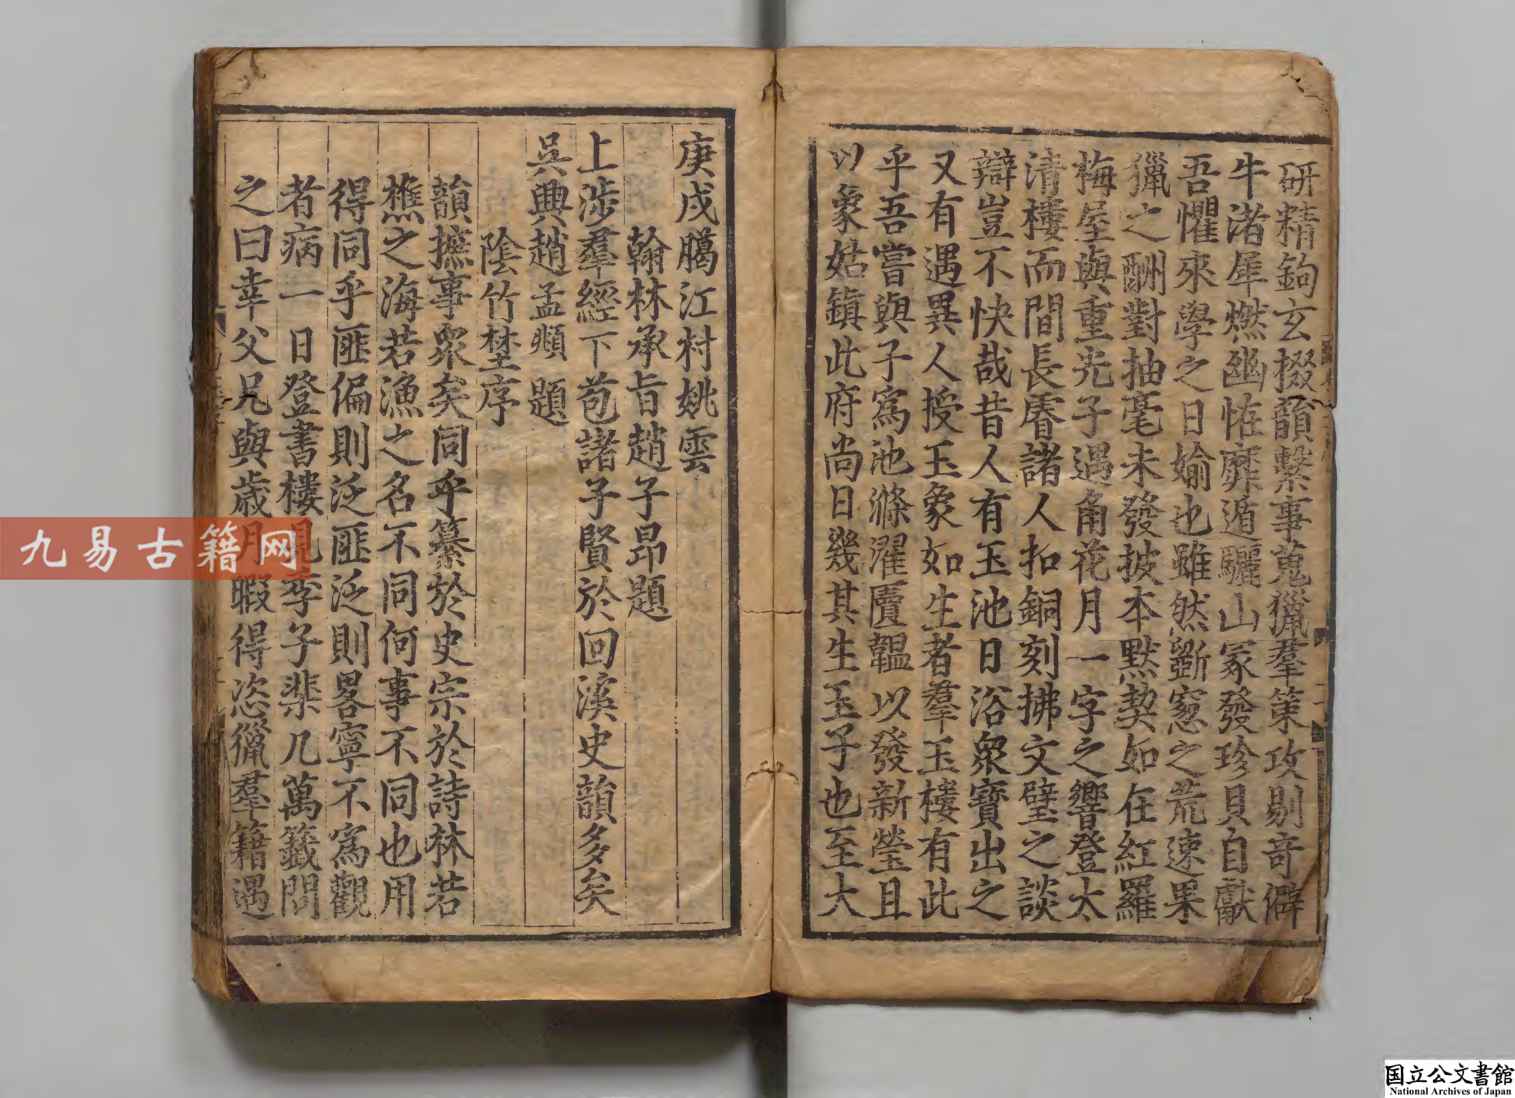 研精鉤玄掇韻繫事蒐獵羣策攻剔竒僻
牛渚犀燃幽恠靡遁驪山冢發珍貝自獻
吾懼來學之日媮也雖然斵窓之荒速果
獵之酬對抽毫未發披本默契如在紅羅
梅屋與重光子遇角花月一字之響登太
清樓而間長睿諸人扣銅刻拂文璧之談
辯豈不快哉昔人有玉池日浴衆寶出之
又有遇異人授玉象如生者羣玉樓有此
乎吾嘗與子爲池滌濯匵韞以發新瑩且
以象姑鎮此府尚日幾其生玉子也至大
庚戌臈江村姚雲
翰林承旨趙子昂題
上涉羣經下苞諸子賢於回溪史韻多矣
吳興趙孟頫題
陰竹埜序
韻摭事衆矣同乎纂於史宗於詩林若
樵之海若漁之名不同何事不同也用
得同乎匪偏則泛匪泛則畧寧不爲觀
者病一日登書樓見李子棐几萬籤問
之曰幸父兄與歲月暇得恣獵羣籍遇
九易古籍网
国立公文書館
National Archives of Japan